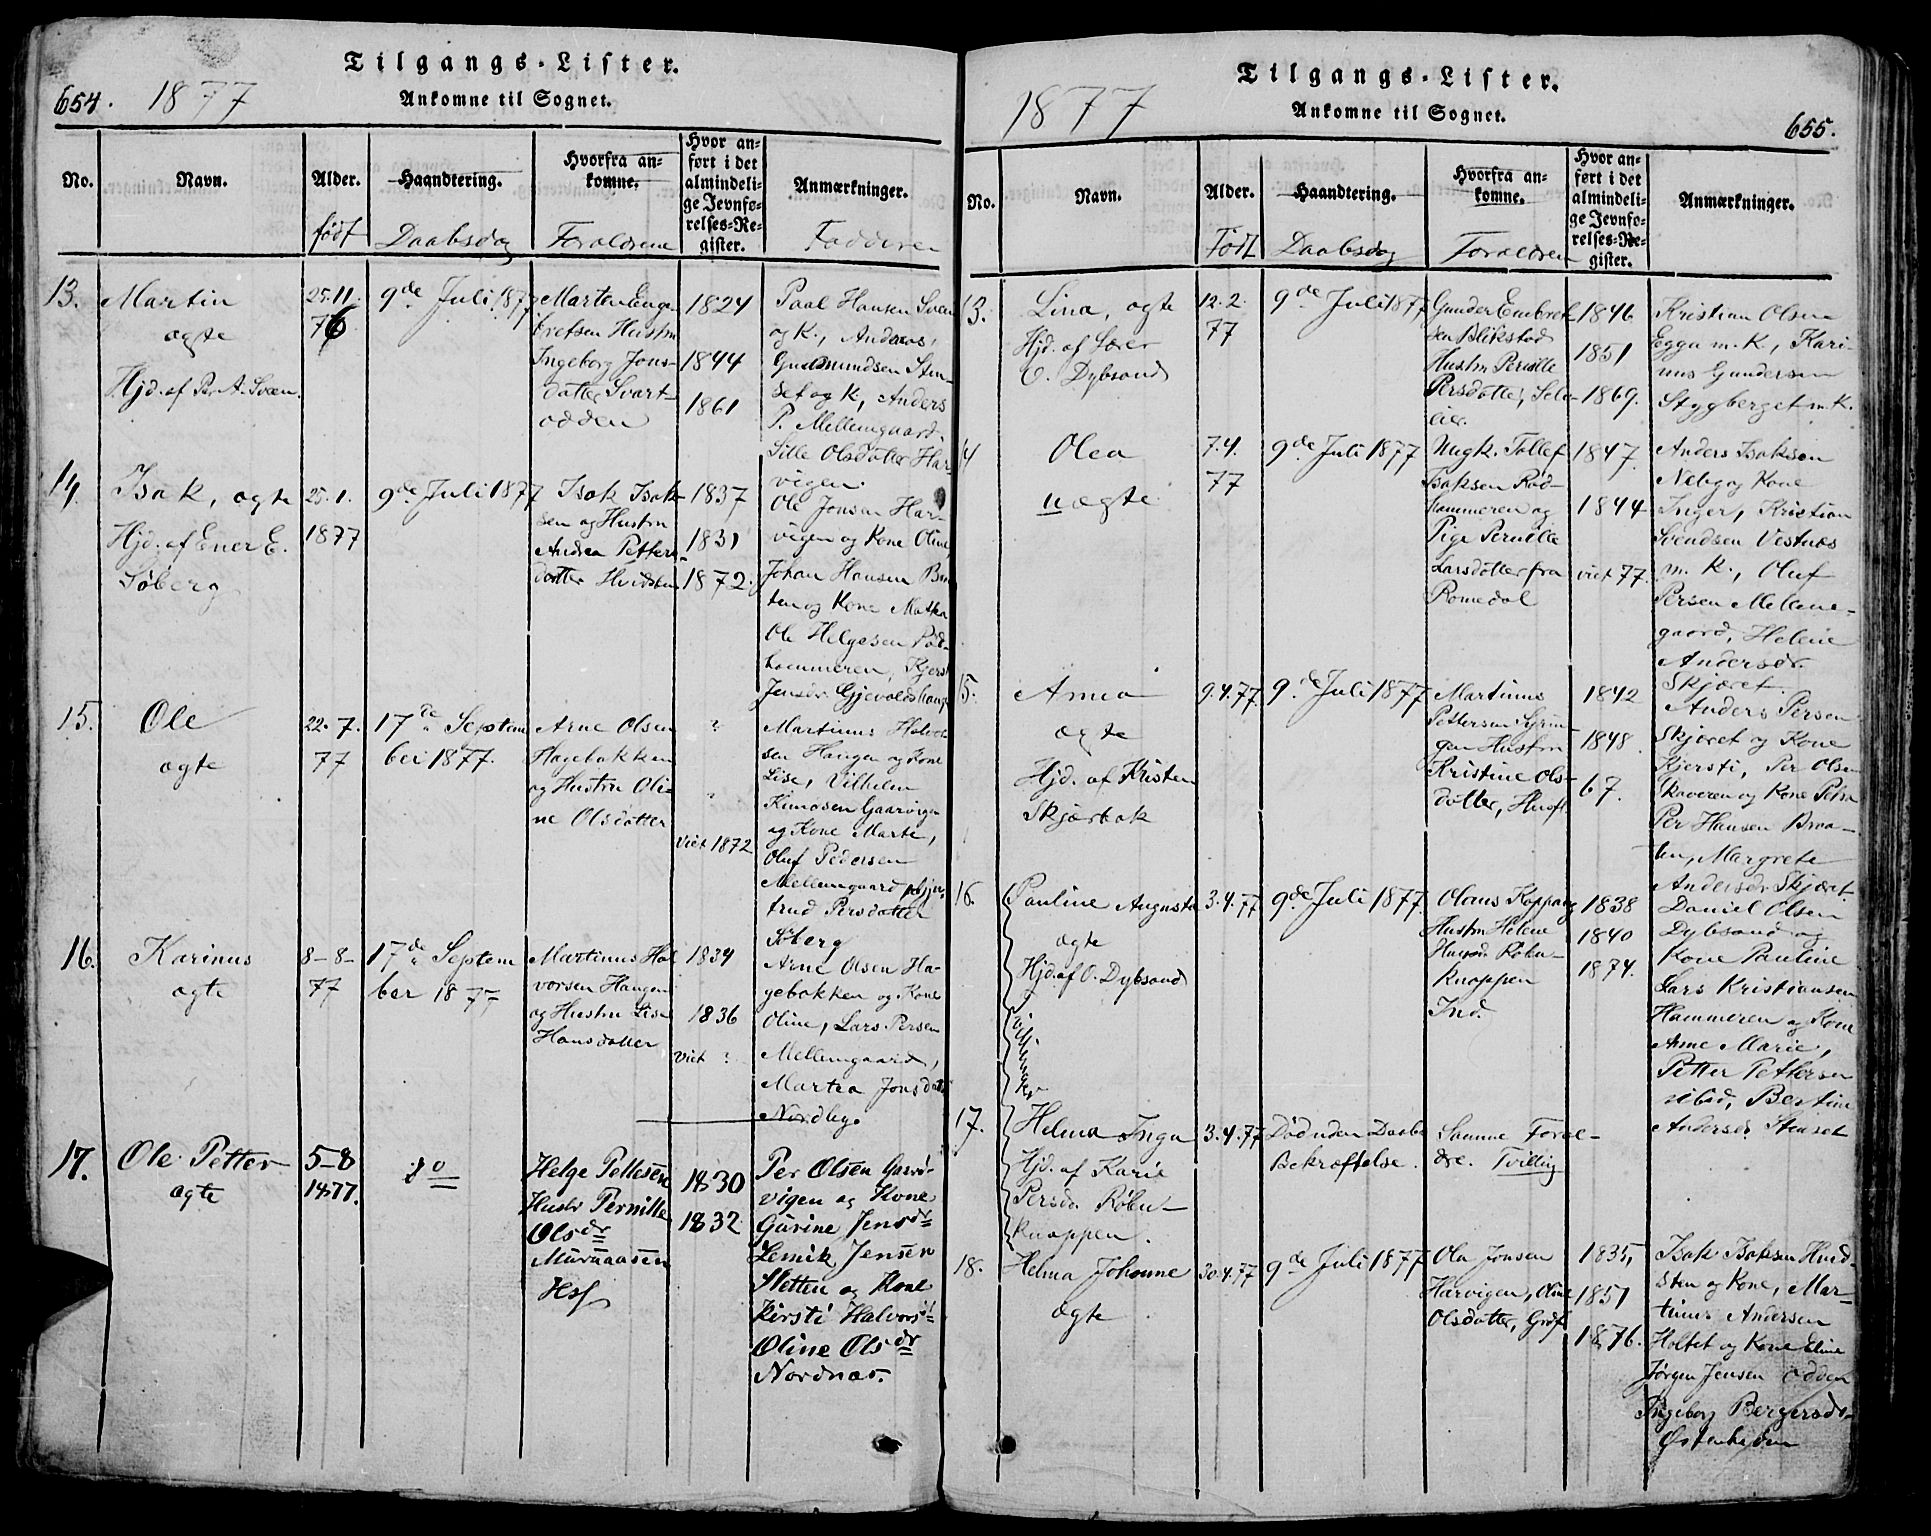 Tilgangs-Lister.
654. 1877
Ankomne til Sognet.
No. Navn. Alder. Haandtering. Hvorfra ankomne. Hvor anført i det almindelige Jevnførelses-Register. Anmærkninger.
født Daabsdag Forældrene Fadderne
13. Martin
ægte
Hjd. af Per A. Svéen.
25.11.
76
9de Juli 1877
Marten Enge
bretsen Hustru
Ingeborg Jons-
datter Svart-
odden
1824
1844
1861
Paal Hansen Svéen
og K., Anders
Gudmundsen Stu-
set og K, Anders
P. Mellemgaard,
Sille Olsdatter Har
vigen.
14. Isak, ægte
Hjd. af Ener E.
Søberg
25.1.
1877
9de Juli 1877
Isak Isak-
sen og Hustru
Andrea Petters
datter Hvidsten
1837
1831
1872.
Ole Jonsen Har-
vigen og Kone Oline
Johan Hansen
ten og Kone Mathea
Ole Helgesen Rød-
hammeren, Kjersti
Jensdr Gjevoldshaug
15. Ole
ægte
22.7.
77
17de Septem
ber 1877.
Arne Olsen
Hagebakken
og Hustru Oli-
ne Olsdatter
?
viet 1872
Martinus Halvor
sen Haugen og Kone
Lise, Vilhelm
Simosen Gaarvigen
og Kone Marte,
Oluf Pedersen
Mellemgaard, Gjer-
trud Persdatter
Søberg
16. Karinus
ægte
8-8-
77
17de Septem
ber 1877
Martinus Hal
vorsen Haugen
og Hustru Lise
Hansdatter
1834
1836
viet ?
Arne Olsen Ha-
gebakken og Kone
Oline, Lars Persen
Mellemgaard,
Martea Jonsdatter
Nordbye
17. Ole Petter
ægte
5-8
1877.
do
Helge Pettersen
Hustr Pernille
Olsdr
Muruaasen
Hsf
1830
1832
Per Olsen Gaard-
vigen og Kone
Gurine Jensdr
Lemik Jensen
Sletten og Kone
Kirsti Halvorsdr
Oline Olsdr
Nordnæs.
Tilgangs-Lister.
1877
Ankomne til Sognet.
655.
No. Navn. Alder. Haandtering. Hvorfra ankomne. Hvor anført i det almindelige Jevnførelses-Register. Anmærkninger.
Født Daabsdag Forældren
13. Lina, ægte
Hjd. af Lærer
O. Dybsand
12.2.
77
9de Juli 1877
Gunder Embret-
sen Blikstad
Hustru Pernille
Persdatter, Selv-
eier.
1846
1851
1869.
Kristian Olsen
Eggen m. K, Kari-
nus Gundersen
Stygberget m. K.
14 Olea
uægte
7.4.
77
9de Juli 1877
Ungk. Tollef
Isaksen Rød-
hammeren og
Pige Pernille
Larsdatter fra
Romedal
1847
1844
viet 77.
Anders Isaksen
Neby og Kone
Inger, Kristian
Svendsen Vestnæs
m. K., Oluf
Persen Mellem-
gaard, Helene
Andersdr.
Skjæret.
15. Anna
ægte
Hjd. af Kristen
Skjærbak
9.4.77
9de Juli 1877
Martinus
Pettersen Syrin-
gen Hustru
Kristine Ols-
datter, Husf.
1842
1848
67.
Anders Persen
Skjæret og Kone
Kjersti, Per Olsen
Skaveren og Kone Petra
Per Hansen Braa-
ten, Margrete
Andersdr Skjæret.
16. Pauline Augusta
ægte
Hjd. af O. Dybsand
Tvillinger
3.4.77
9de Juli 1877.
Olaus Koppang
Hustru Helene
Hansdr Røbu-
knappen
Ind.
1838
1840
1874.
Daniel Olsen
Dybsand og
Kone Pauline
Lars Kristiansen
Hammeren og Kone
Anne Marie,
Petter Pettersen
ibid, Bertine
Andersdr. Stenset
17. Helma Inga
Hjd. af Karie
Persdr Røbu-
knappen.
3.4.77
Død uden Daabs
Bekræftelse.
Samme Foræl-
dre. Tvilling
18. Helma Johanne
ægte
30.4.77
9de Juli 1877
Ola Jonsen
Harvigen, Oline
Olsdatter, Grdf
1835,
1851
1876.
Isak Isaksen Hvid-
sten og Kone, Mar-
tinus Andersen
Holtet og Kone Eline
Jørgen Jensen Odden
Ingeborg Bergersdr-
Østenheden